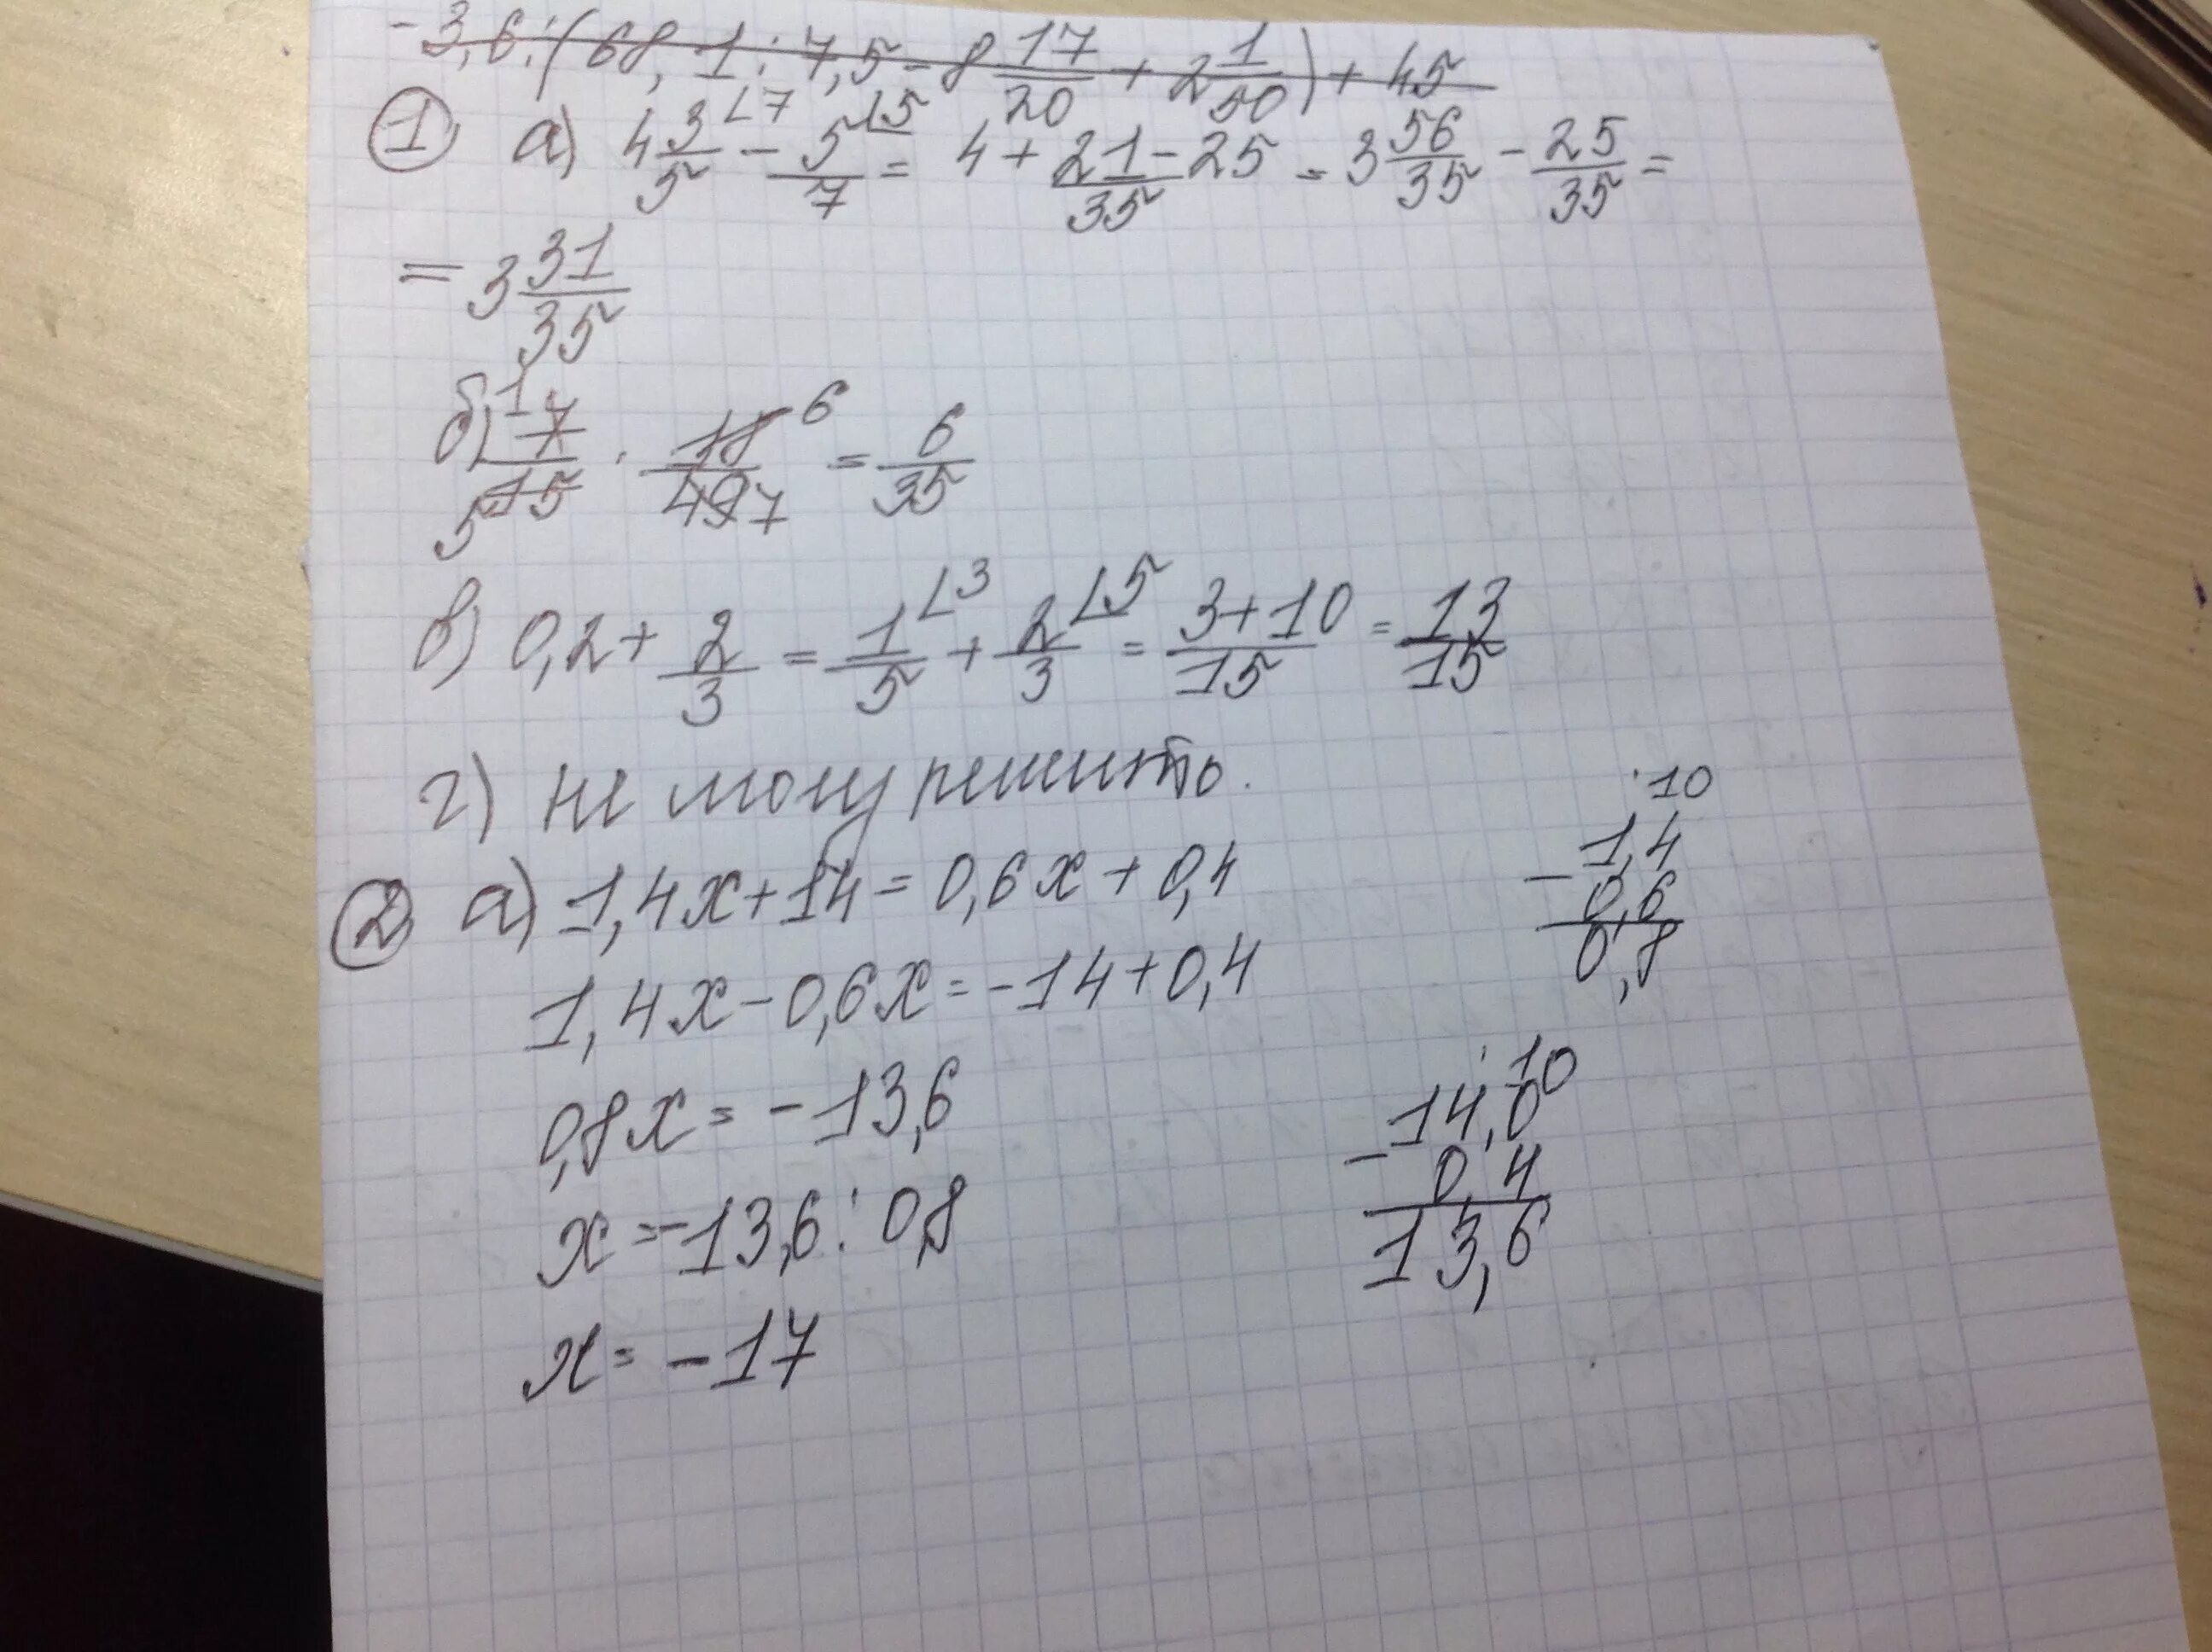 -3,6:(68,1:7,5-8 17/20+2 1/50)+45
① а) 4 3/5 ∟7 - 5/7 ∟5 = 4 + 21-25/35 = 3 56/35 - 25/35 =
= 3 31/35
б) 7/15 1 5 · 18/49 6 7 = 6/35
в) 0,2 + 2/3 = 1/5 ∟3 + 2/3 ∟5 = 3+10/15 = 13/15
г) не могу решить.
② а) 1,4x+14=0,6x+0,4
1,4x-0,6x=-14+0,4
0,8x=-13,6
x=-13,6:0,8
x=-17
·10
-1,4
0,6
0,8
·10
-14,0
0,4
13,6